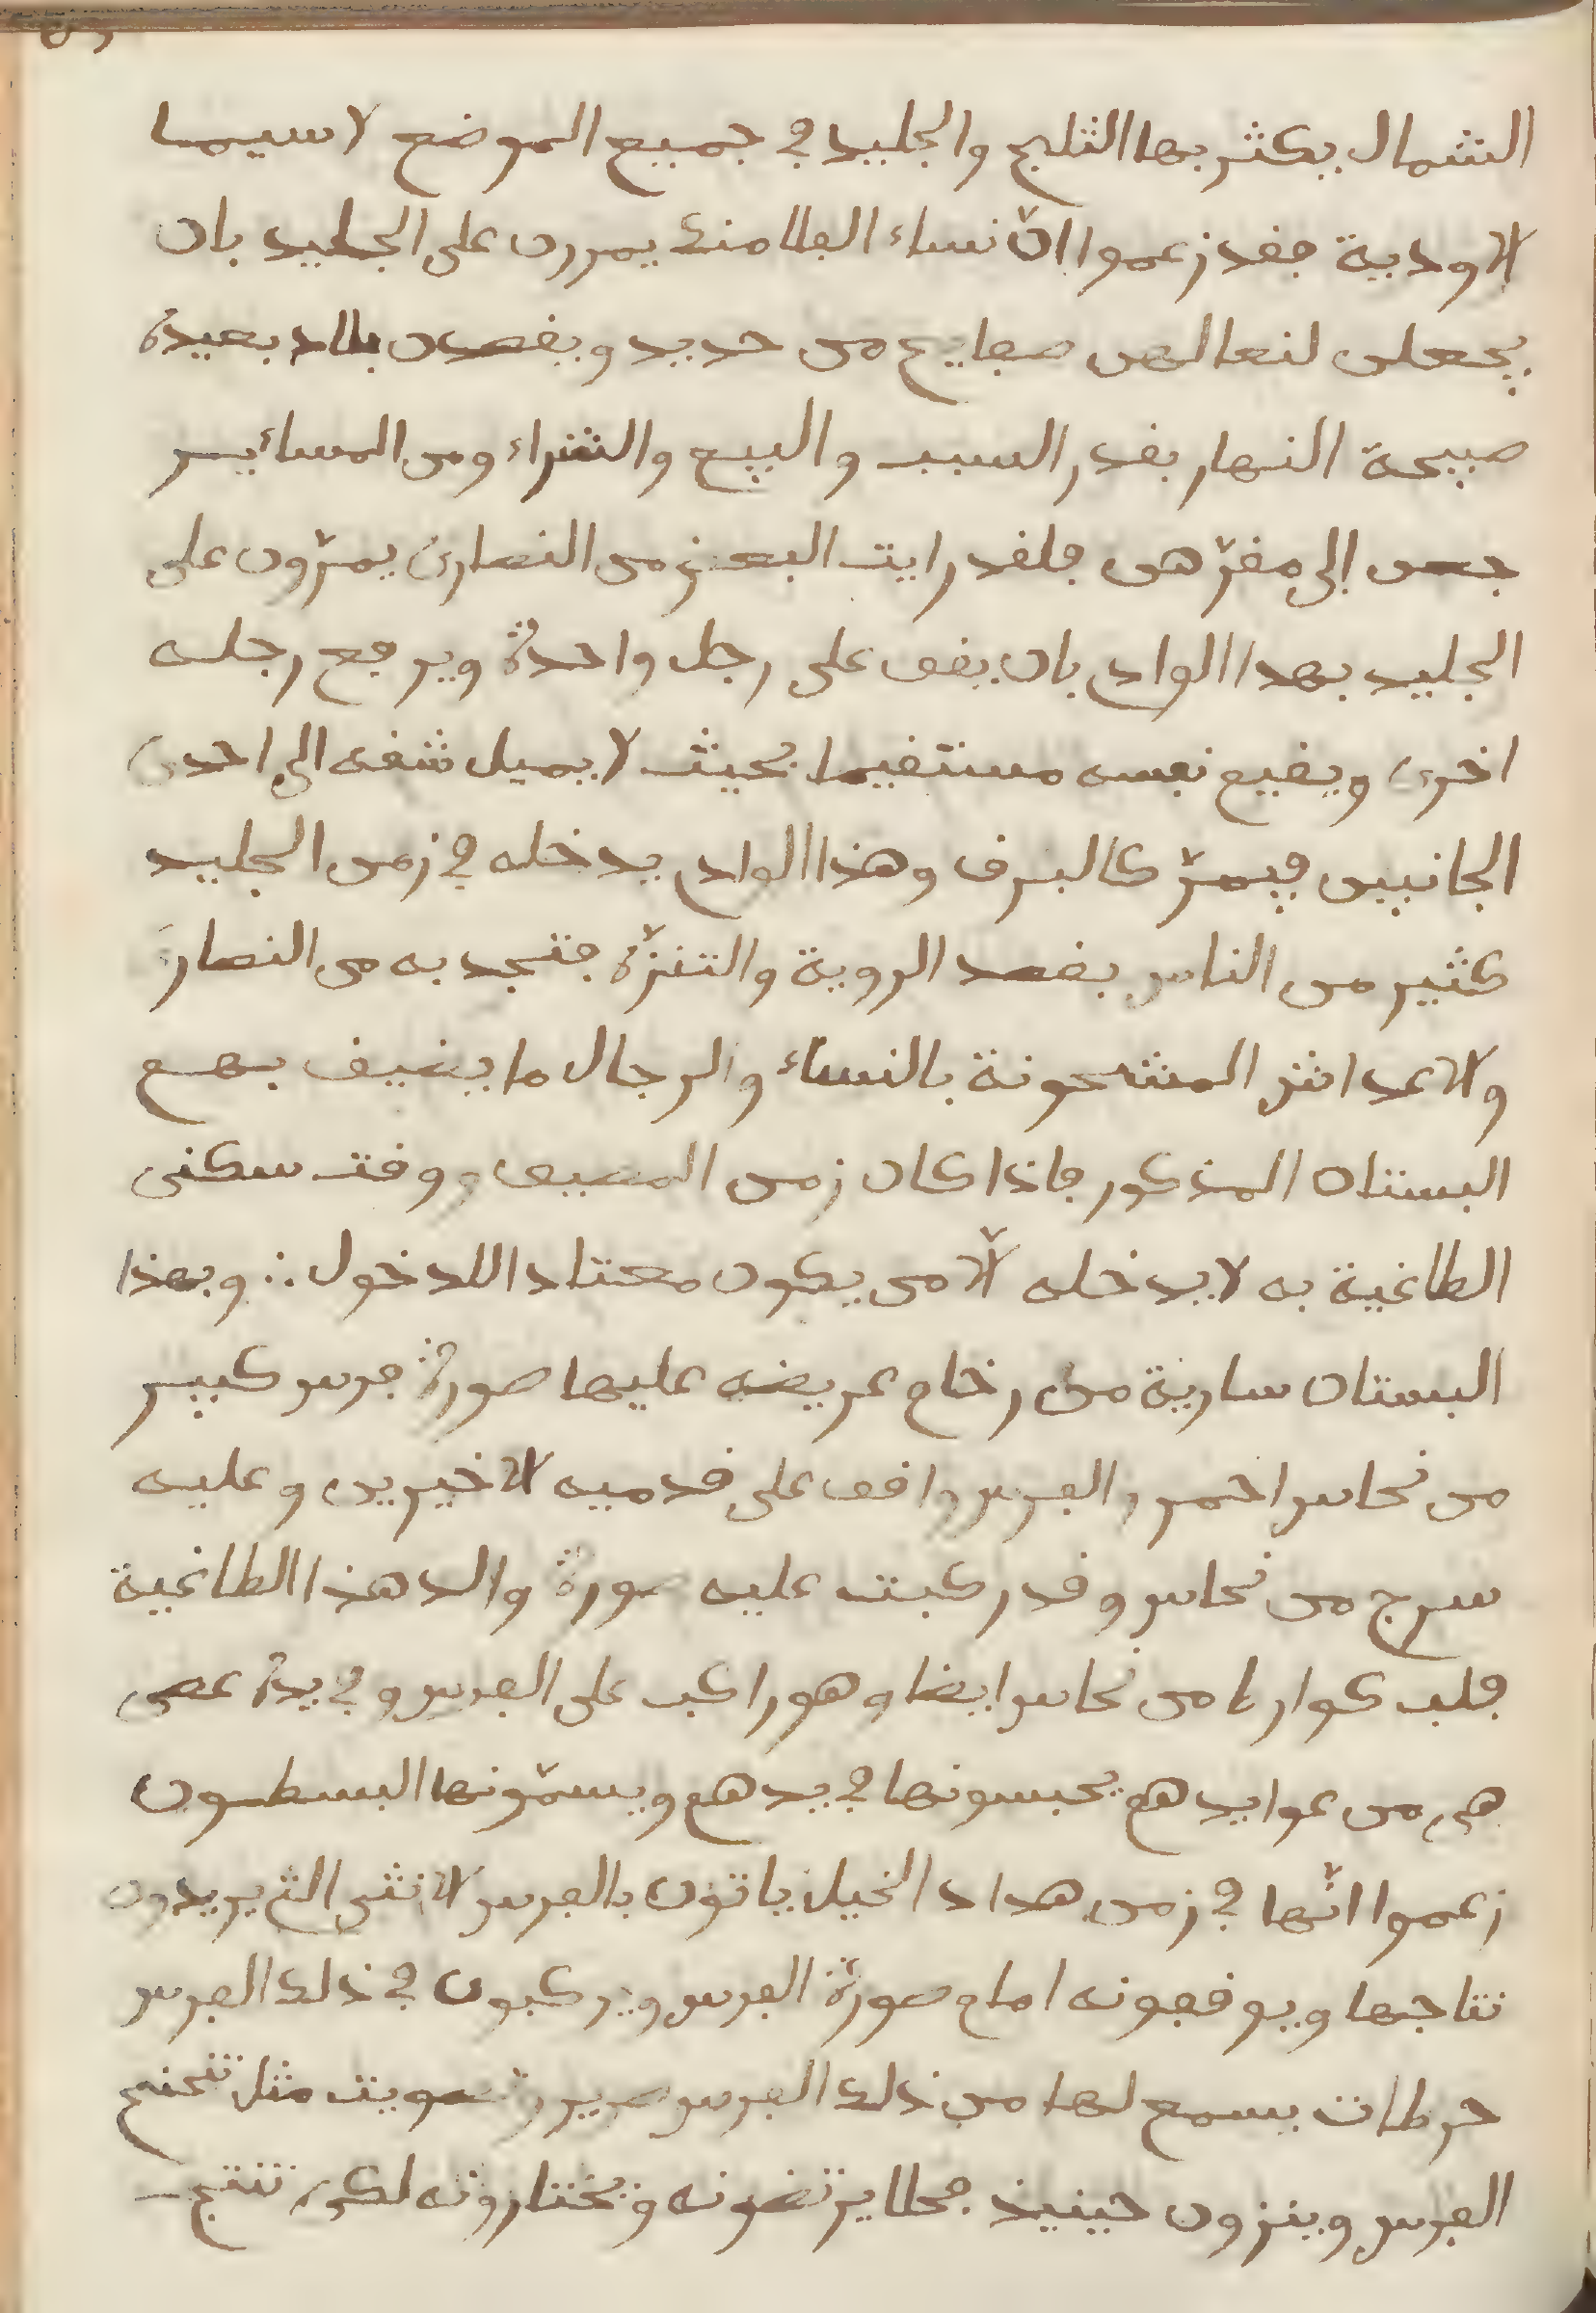 الشمال يكثر بها الثلج والجليد في جميع الموضع لا سيما
الاودية فقد زعموا انّ نساء الفلامنك يمررن على الجليد بان
يجعلن لنعالهن صفايح من حديد ويقصدن بلاد بعيدة
صبيحة النهار بقدر السبب والبيع والشراء ومن المسائير
جعن الى مقرّهن فلقد رايت البعض من النصارى يمرّون على
الجليد بهدا الواد بان يقف على رجل واحدة ويرفع رجله
اخرى ويقيم نفسه مستقيما بحيث لا يميل شقه الى احدى
الجانبين فيمرّ كالبرق وهذا الواد يدخله في زمن الجليد
كثير من الناس بقصد الروية والتنزّه فتجد به من النصار
والاعداش المشحونة بالنساء والرجال ما يضيق بهم
البستان المذكور فاذا كان زمن المصيف ووقت سكنى
الطاغية به لا يدخله الّا من يكون معتادا للدخول ∴ وبهذا
البستان سارية من رخام عريضه عليها صورة فرس كبير
من نحاس احمر والفرس واقف على قدميه الاخيرين وعليه
سرج من نحاس وقد ركبت عليه صورة والد هذا الطاغية
فلب كوارط من نحاس ايضا وهو راكب على الفرس وفي يده عصى
هي من عوايدهم يحبسونها في يدهم ويسمّونها البسطون
زعموا انّها في زمن هداد الخيل ياتون بالفرس الانثى التي يريدون
نتاجها ويوقفونه امام صورة الفرس ويركبون في ذلك الفرس
حركات يسمع لها من ذلك الفرس صرير وتصويت مثل تحنحم
الفرس وينزون حينيذ فحلا يرتضونه ويختارونه لكي تنتج